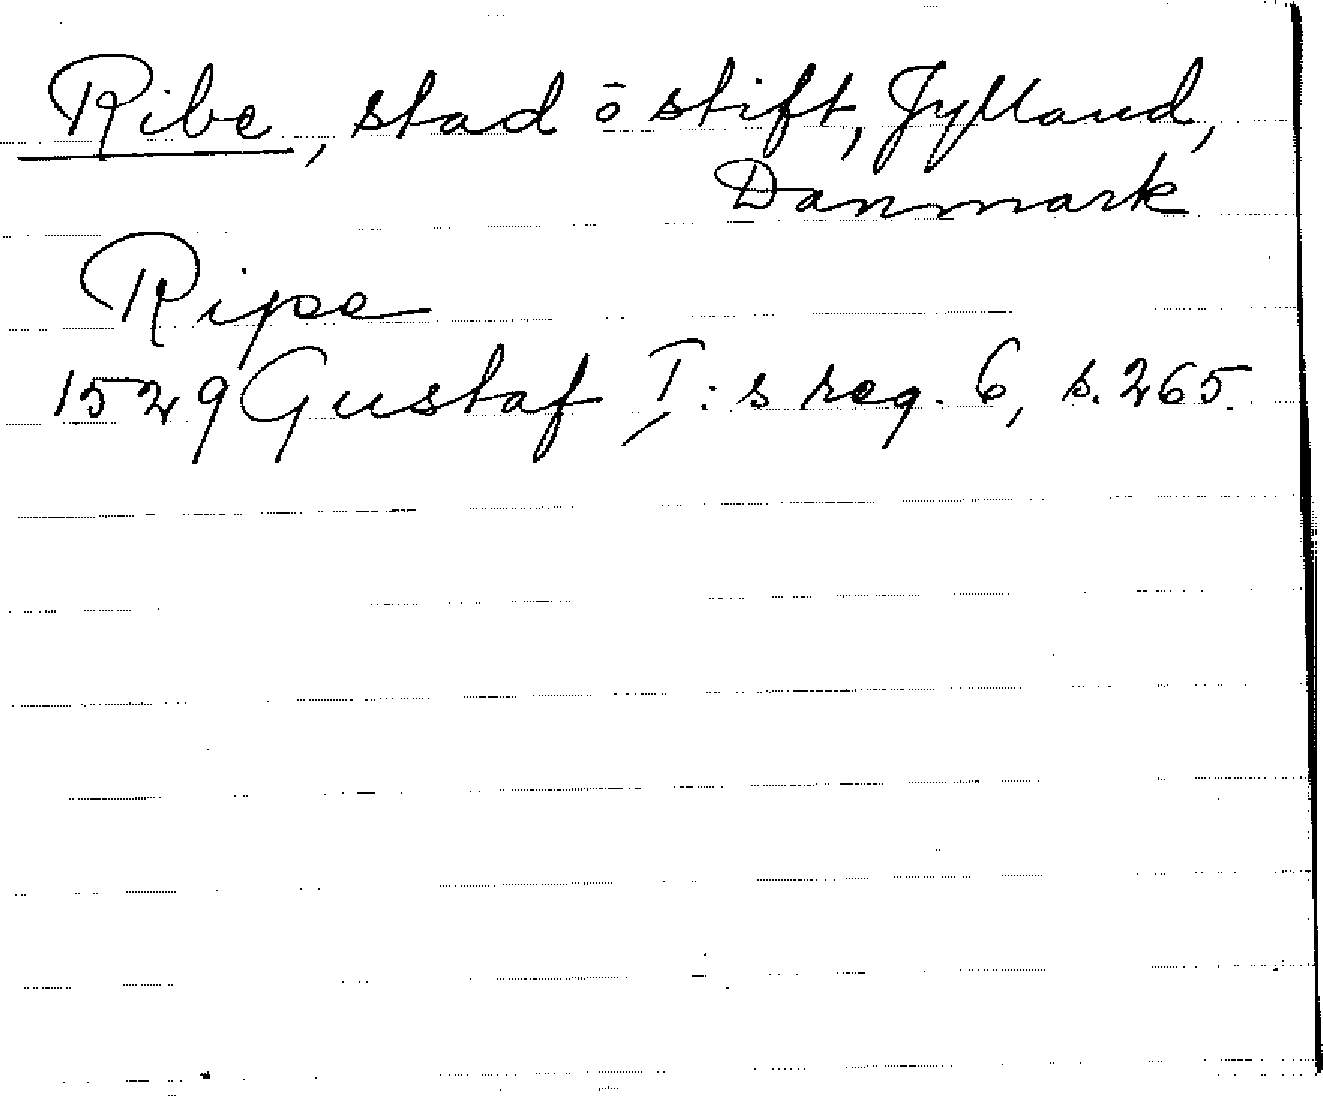 Ribe, stad ō stift, Jylland,
Danmark
Ripe
1529 Gustaf I:s reg. 6, s. 265.